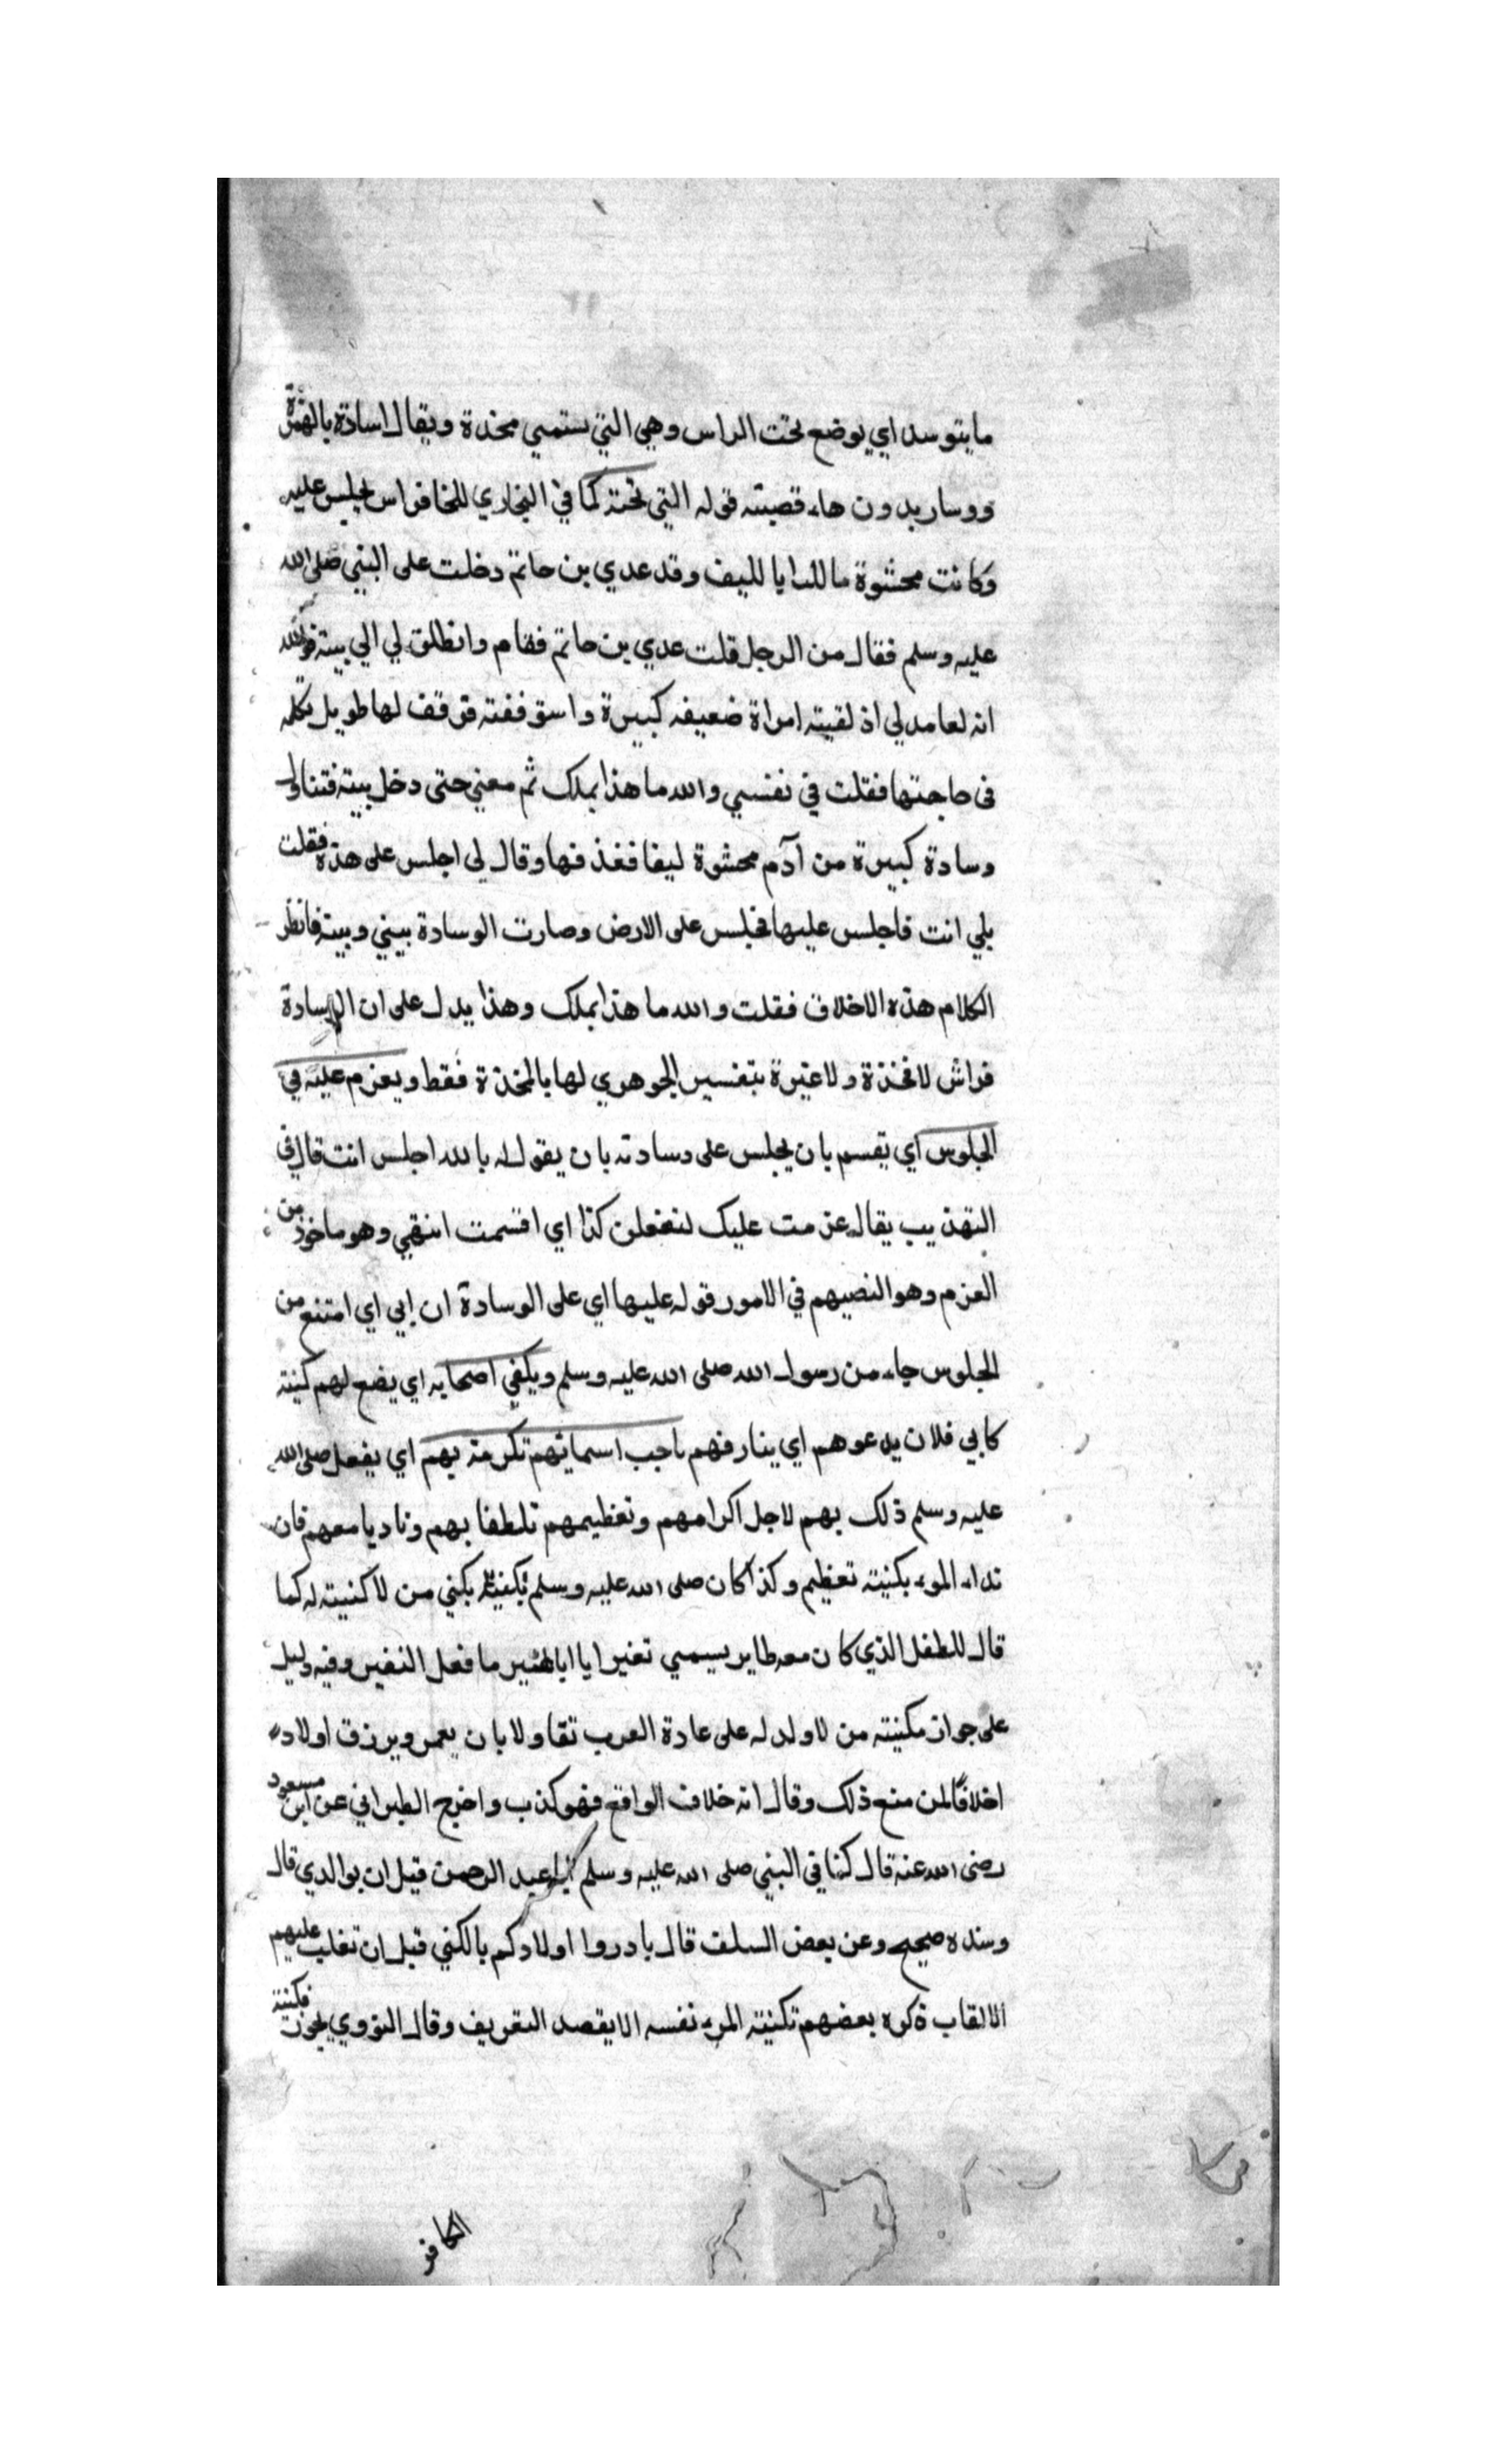 ما يتوسد اي يوضع تحت الراس وهي التي ستمي مخدة ويقال اساده بالهمزة
ووساربدون هاء قصيته قوله التي تحته كما في البخاري للخافراس يجلس عليه
وكانت محشوة ما للدايا لليف وقد عدي بن حاتم دخلت على النبي صلى الله
عليه وسلم فقال من الرجل قلت عدي بن حاتم فقام وانطلق لي الي بيته فوالله
انه لعامد لي اذ لقيته امراة ضعيفه كبيرة واستوقفته فوقف لها طويل تكلمه
في حاجتها فقلت في نفسي والله ما هذا بملك ثم معني حتى دخل بيته فتناول
وسادة كبيرة من آدم محشوة ليفا فغذ فها وقال لي اجلس على هذه فقلت
بلي انت فاجلس عليها فجلس على الارض وصارت الوسادة بيني وبينه فانظر
الكلام هذه الاخلاق فقلت والله ما هذا بملك وهذا يدل على ان الوسادة
فراش لا مخدة ولا عبرة بتفسير الجوهري لها بالمخدة فقط ويعزم عليه في
الجلوس اي يقسم بان يجلس على وسادته بان يقول له بالله اجلس انت قال في
التهذيب يقال عزمت عليك لتفعلن كذا اي اقسمت انتهي وهو ماخوذ من
العزم وهو النصيهم في الامور قوله عليها اي على الوسادة ان ابي اي امتنع من
الجلوس جاء من رسول الله صلى الله عليه وسلم ويكفي اصحابه اي يضع لهم كنيته
كابي فلان يدعوهم اي ينار فهم باحب اسمايتهم تكرمة بهم اي يفعل صلى الله
عليه وسلم ذلك بهم لاجل اكرامهم وتعظيمهم تلطفا بهم وناديا معهم فان
نداء المرء بكنيته تعظيم وكذا كان صلى الله عليه وسلم بكنيته يكني من لا كنيته له كما
قال للطفل الذي كان معه طاير يسمي تغيرا يا ابا عمير ما فعل النغير وفيه دليل
على جواز مكنيته من لا ولد له على عادة العرب تقاولا بان يعمر ويرزق اولاده
اخلافا لمن منع ذلك وقال انه خلاف الواقع فهو كذب واخرج الطبراني عن ابن مسعود
رضى الله عنه قال كنا في النبي صلى الله عليه وسلم عبد الرحمن قيل ان يوالدي قال
وسنده صحيح وعن بعض السلف قال بادروا اولادكم بالكني قبل ان تغلب عليهم
الالقاب ذكره بعضهم تكنيته المرء نفسه الا يقصد التعريف وقال النووي يجوز تكنيته
الكافر